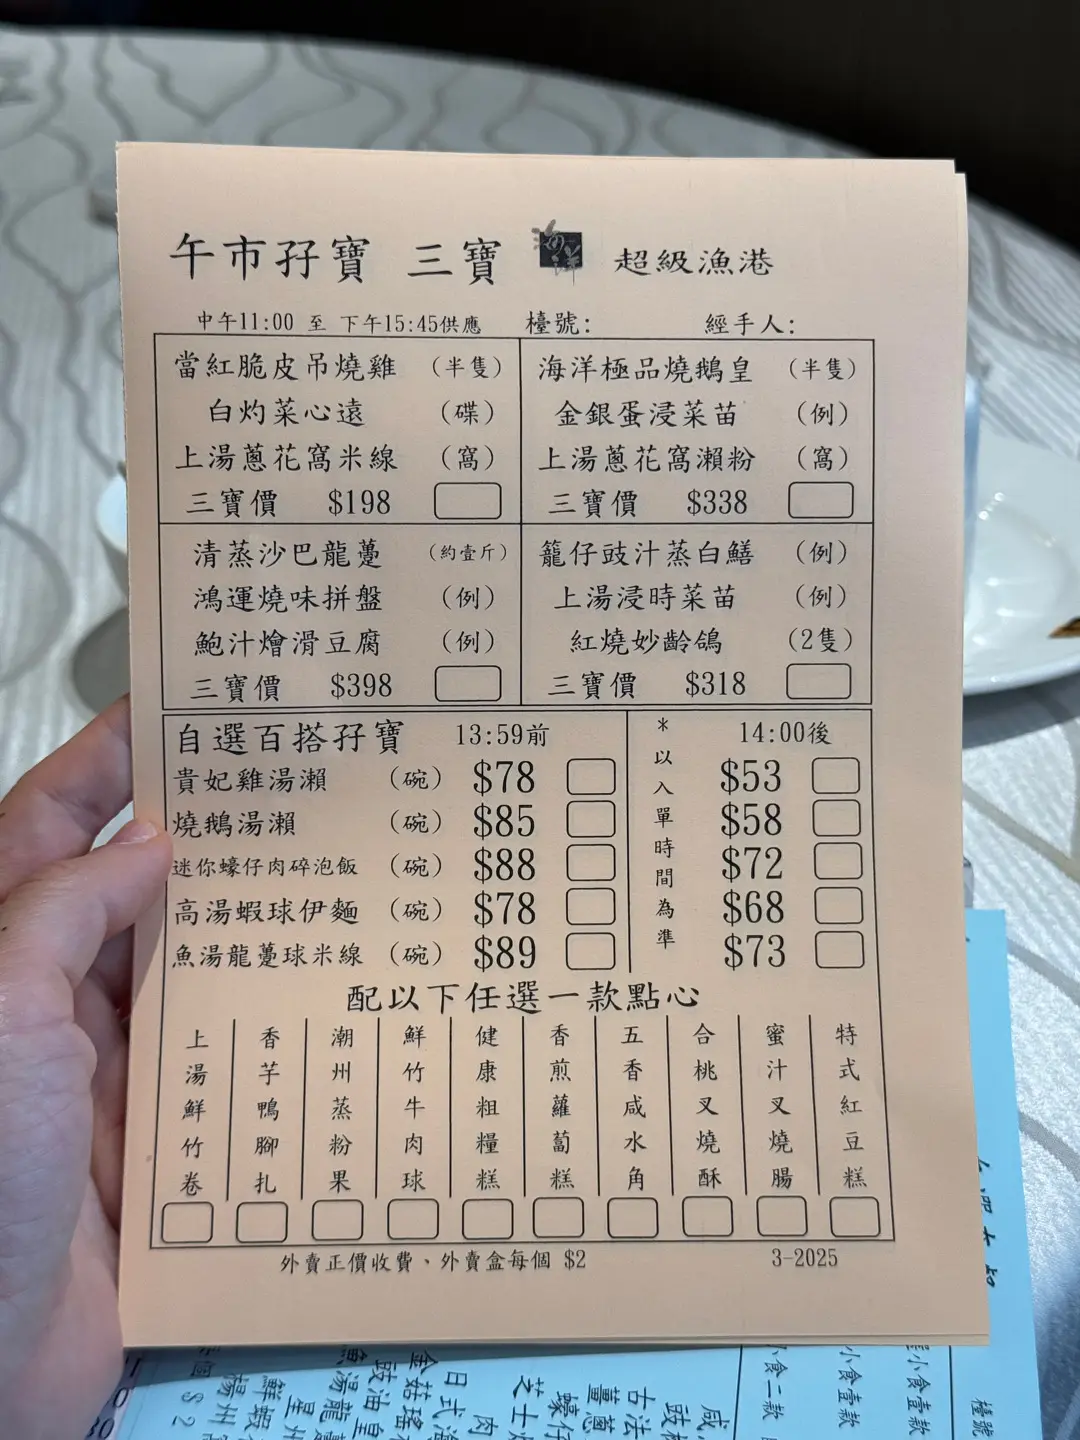 午市孖寶 三寶 海洋 超級漁港
中午11:00 至 下午15:45供應 檯號: 經手人:
當紅脆皮吊燒雞 (半隻)
白灼菜心遠 (碟)
上湯蔥花窩米線 (窩)
三寶價 $198
海洋極品燒鵝皇 (半隻)
金銀蛋浸菜苗 (例)
上湯蔥花窩瀨粉 (窩)
三寶價 $338
清蒸沙巴龍躉 (約壹斤)
鴻運燒味拼盤 (例)
鮑汁燴滑豆腐 (例)
三寶價 $398
籠仔豉汁蒸白鱔 (例)
上湯浸時菜苗 (例)
紅燒妙齡鴿 (2隻)
三寶價 $318
自選百搭孖寶 13:59前 14:00後
貴妃雞湯瀨 (碗) $78 $53
燒鵝湯瀨 (碗) $85 $58
迷你蠔仔肉碎泡飯 (碗) $88 $72
高湯蝦球伊麵 (碗) $78 $68
魚湯龍躉球米線 (碗) $89 $73
*以入單時間為準
配以下任選一款點心
上湯鮮竹卷
香芋鴨腳扎
潮州蒸粉果
鮮竹牛肉球
健康粗糧糕
香煎蘿蔔糕
五香咸水角
合桃叉燒酥
蜜汁叉燒腸
特式紅豆糕
外賣正價收費、外賣盒每個 $2 3-2025
檯號
小食壹款
小食壹款
小食二款